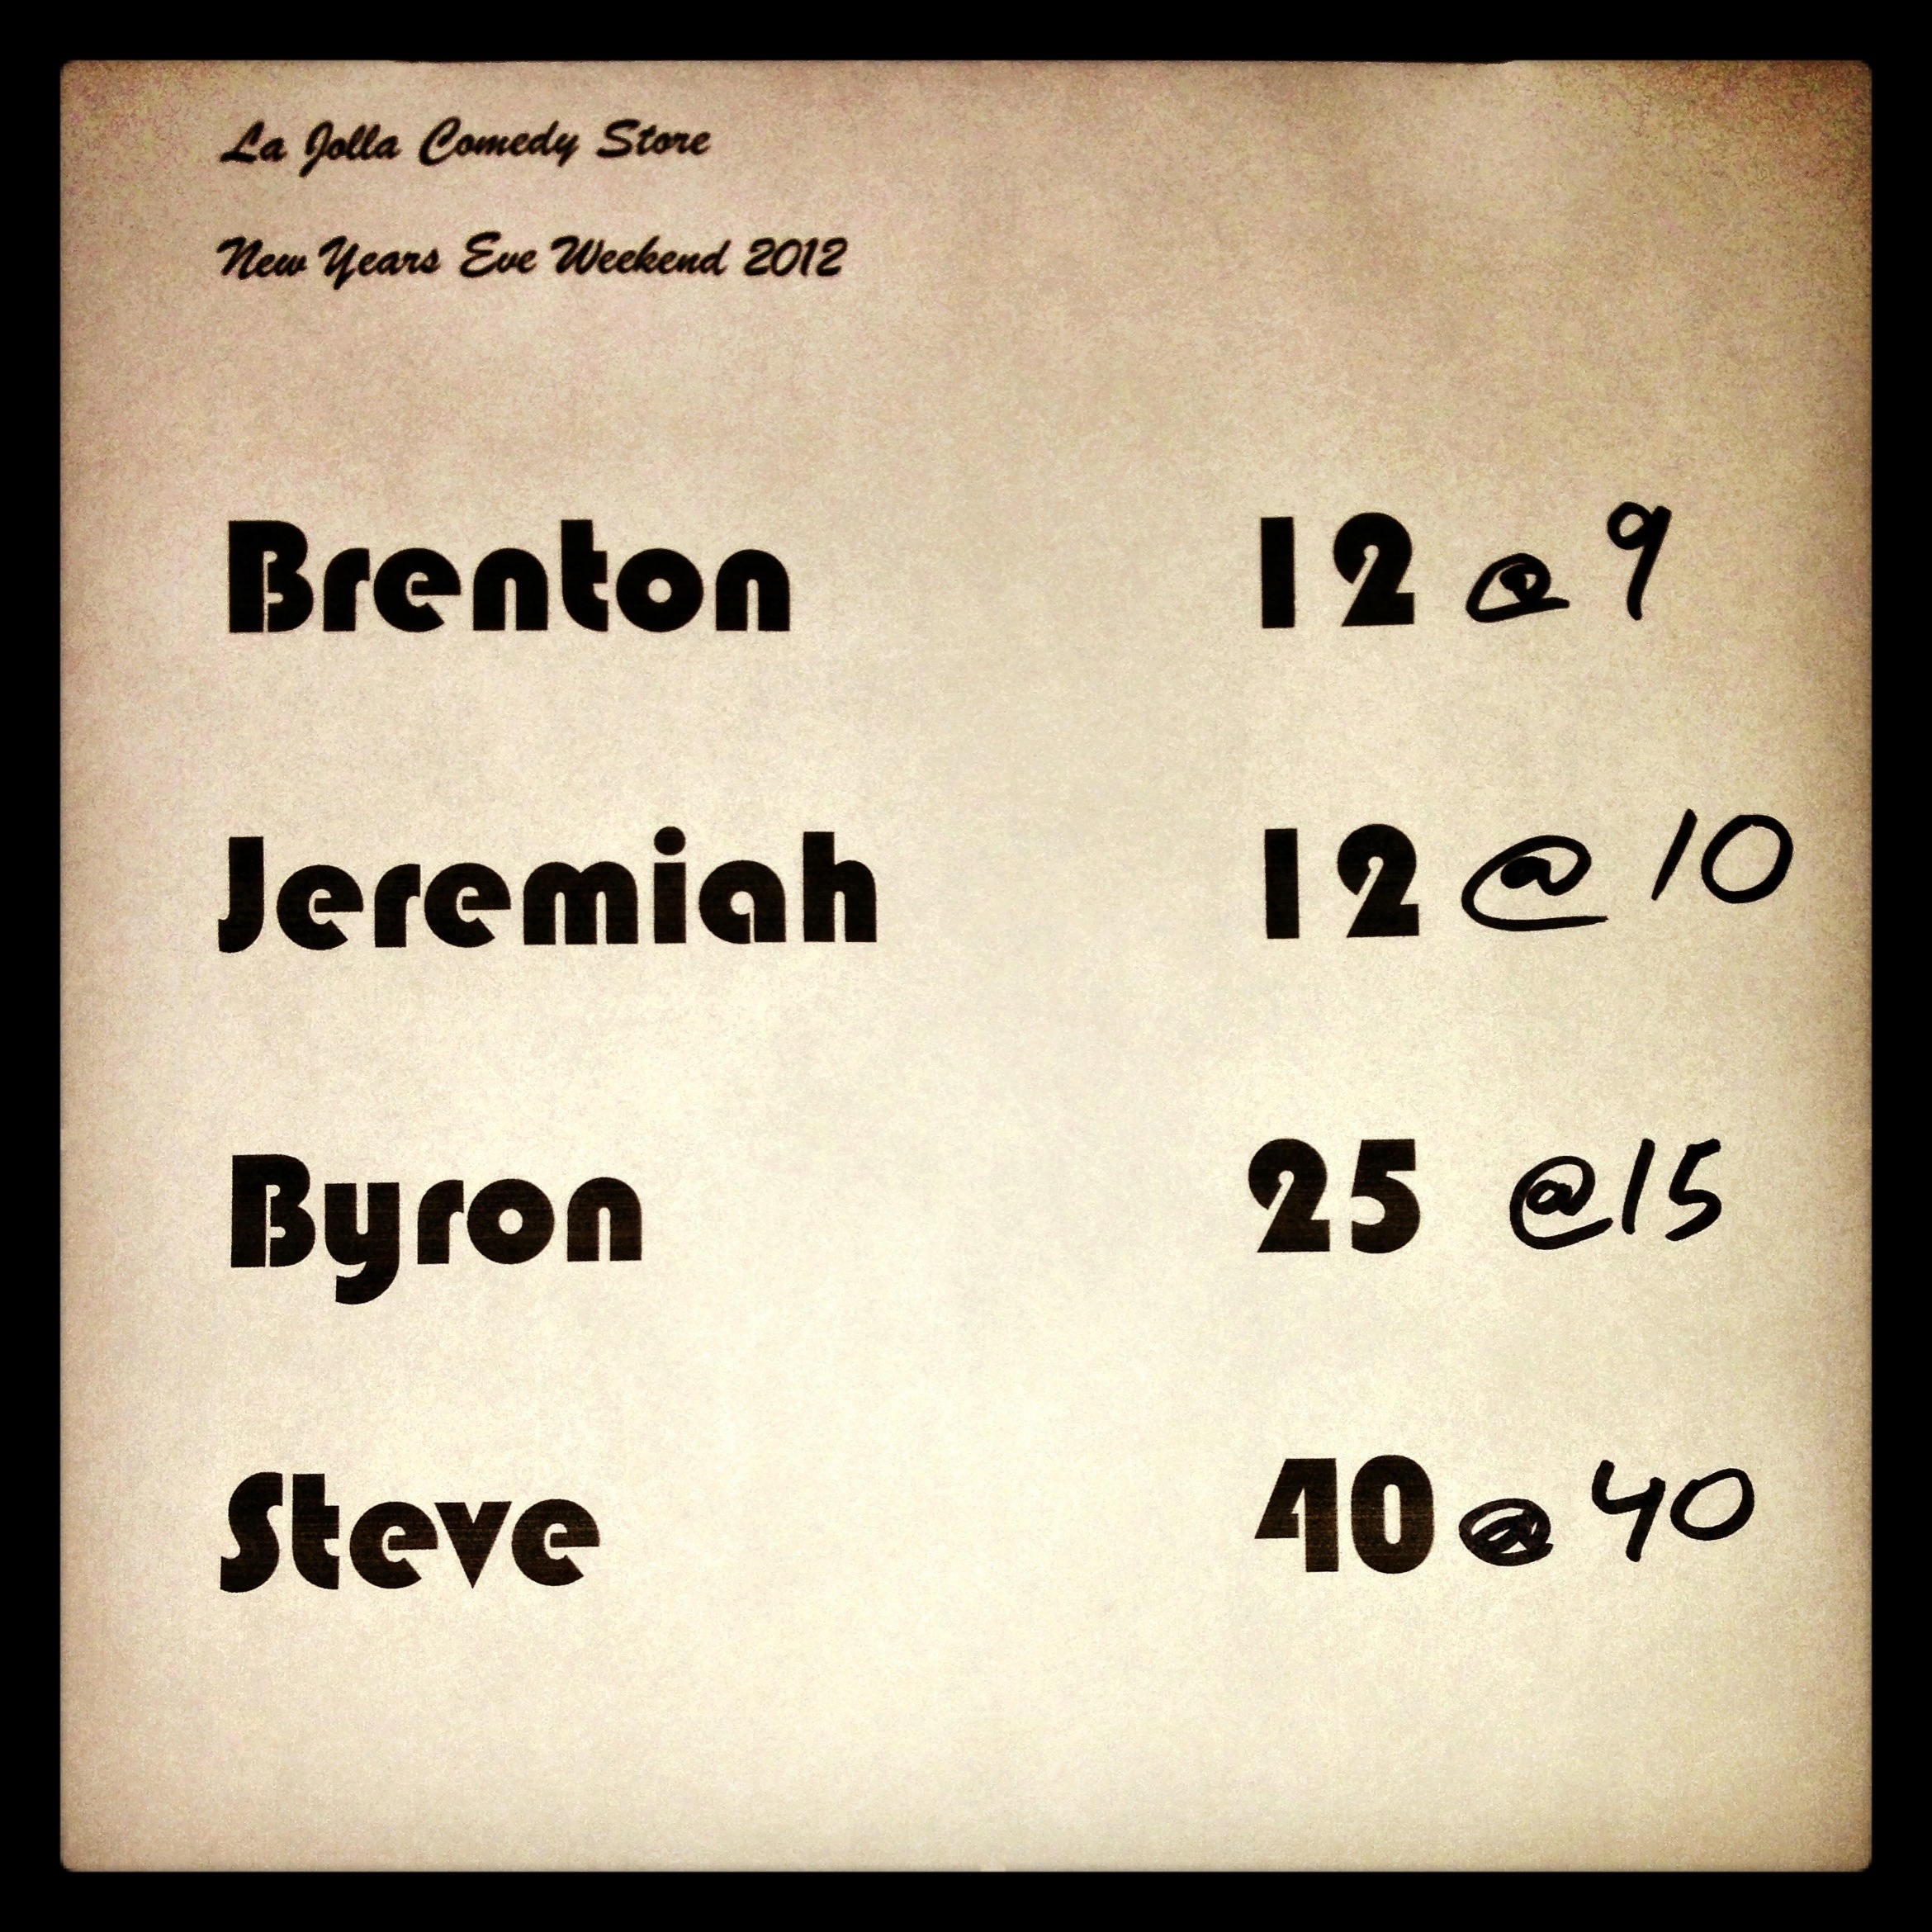 La Jolla Comedy Store
New Years Eve Weekend 2012
Brenton 12 @ 9
Jeremiah 12 @ 10
Byron 25 @ 15
Steve 40 @ 40